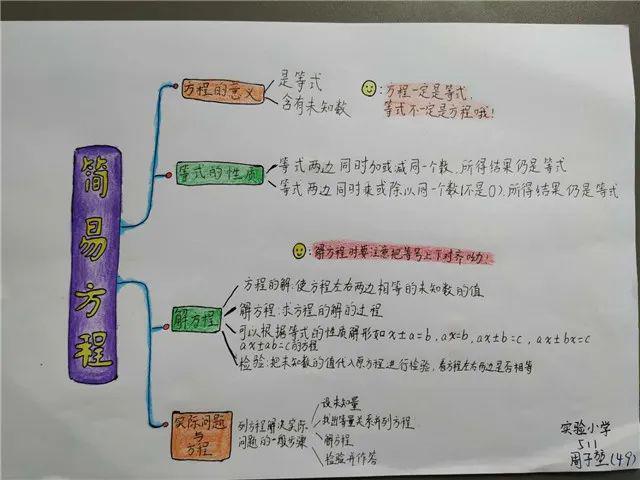 简易方程
方程的意义
是等式
含有未知数
:方程一定是等式,
等式不一定是方程哦!
等式的性质
等式两边同时加或减同一个数,所得结果仍是等式
等式两边同时乘或除以同一个数(不是0),所得结果仍是等式
:解方程时要注意把等号上下对齐哦!
解方程
方程的解:使方程左右两边相等的未知数的值
解方程:求方程的解的过程
可以根据等式的性质解形如x±a=b,ax=b,ax±b=c,ax±bx=c
ax±ab=c的方程
检验:把未知数的值代入原方程进行检验,看方程左右两边是否相等
实际问题
与
方程
列方程解决实际
问题的一般步骤
设未知量
找出等量关系并列方程
解方程
检验并作答
实验小学
511
周子堃(49)